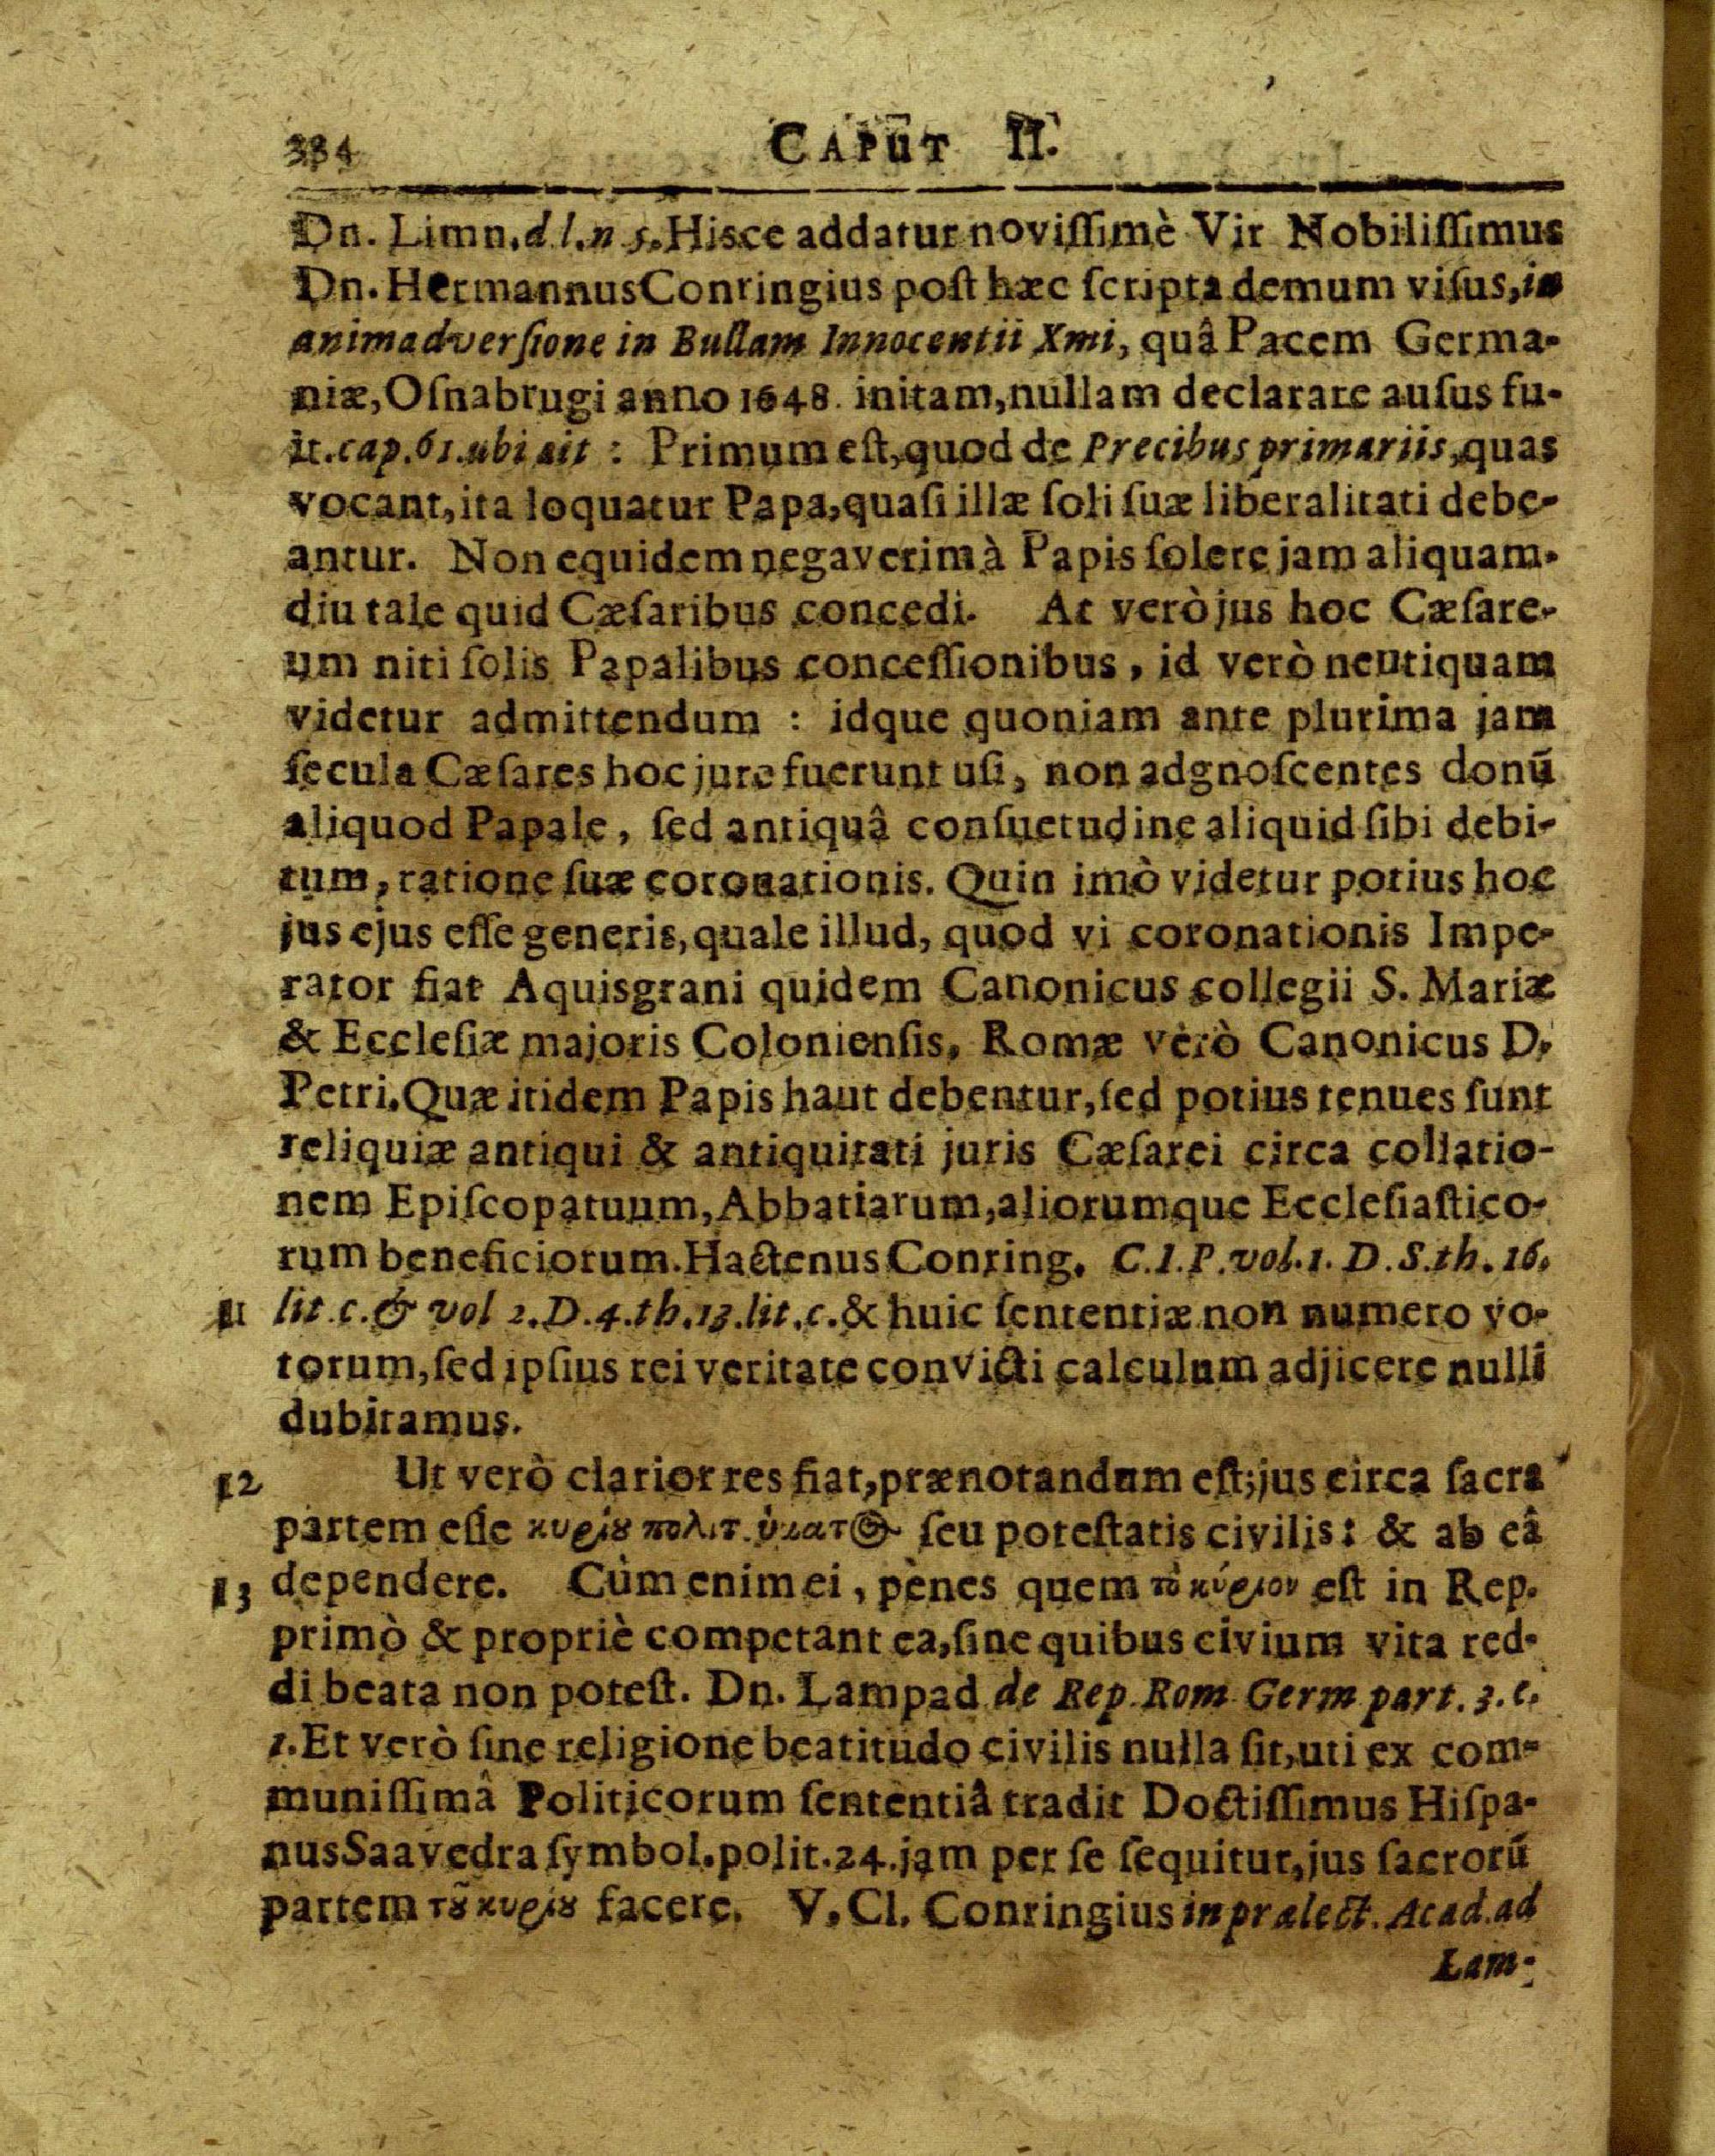 334 CAPUT II.
Dn. Limn. d l. n 5. Hisce addatur novissimè Vir Nobilissimus
Dn. Hermannus Conringius post hæc scripta demum visus, in
animadversione in Bullam Innocentii Xmi, quâ Pacem Germa-
niæ, Osnabrugi anno 1648. initam, nullam declarare ausus fu-
it. cap. 61. ubi ait : Primum est, quod de Precibus primariis, quas
vocant, ita loquatur Papa, quasi illæ soli suæ liberalitati debe-
antur. Non equidem negaverim à Papis solere jam aliquam-
diu tale quid Cæsaribus concedi. At verò jus hoc Cæsare-
um niti solis Papalibus concessionibus, id verò neutiquam
videtur admittendum : idque quoniam ante plurima jam
secula Cæsares hoc jure fuerunt usi, non adgnoscentes donū
aliquod Papale, sed antiquâ consuetudine aliquid sibi debi-
tum, ratione suæ coronationis. Quin imò videtur potius hoc
jus ejus esse generis, quale illud, quod vi coronationis Impe-
rator fiat Aquisgrani quidem Canonicus collegii S. Mariæ
& Ecclesiæ majoris Coloniensis, Romæ verò Canonicus D.
Petri. Quæ itidem Papis haut debentur, sed potius tenues sunt
reliquiæ antiqui & antiquitati juris Cæsarei circa collatio-
nem Episcopatuum, Abbatiarum, aliorumque Ecclesiastico-
rum beneficiorum. Hactenus Conring. C. I. P. vol. 1. D. S. th. 16.
11 lit. c. & vol 2. D. 4. th. 13. lit. c. & huic sententiæ non numero vo-
torum, sed ipsius rei veritate convicti calculum adjicere nulli
dubitamus.
12 Ut verò clarior res fiat, prænotandum est; jus circa sacra
partem esse κυρίȣ seu potestatis civilis: & ab eâ
13 dependere. Cùm enim ei, pènes quem τὸ κύριον est in Rep.
primò & propriè competant ea, sine quibus civium vita red-
di beata non potest. Dn. Lampad de Rep. Rom. Germ part. 3. c.
1. Et verò sine religione beatitudo civilis nulla sit, uti ex com-
munissimâ Politicorum sententiâ tradit Doctissimus Hispa-
nus Saavedra symbol. polit. 24. jam per se sequitur, jus sacrorū
partem τȣ͂ κυρίȣ facere. V. Cl. Conringius in prælect. Acad. ad
Lam-